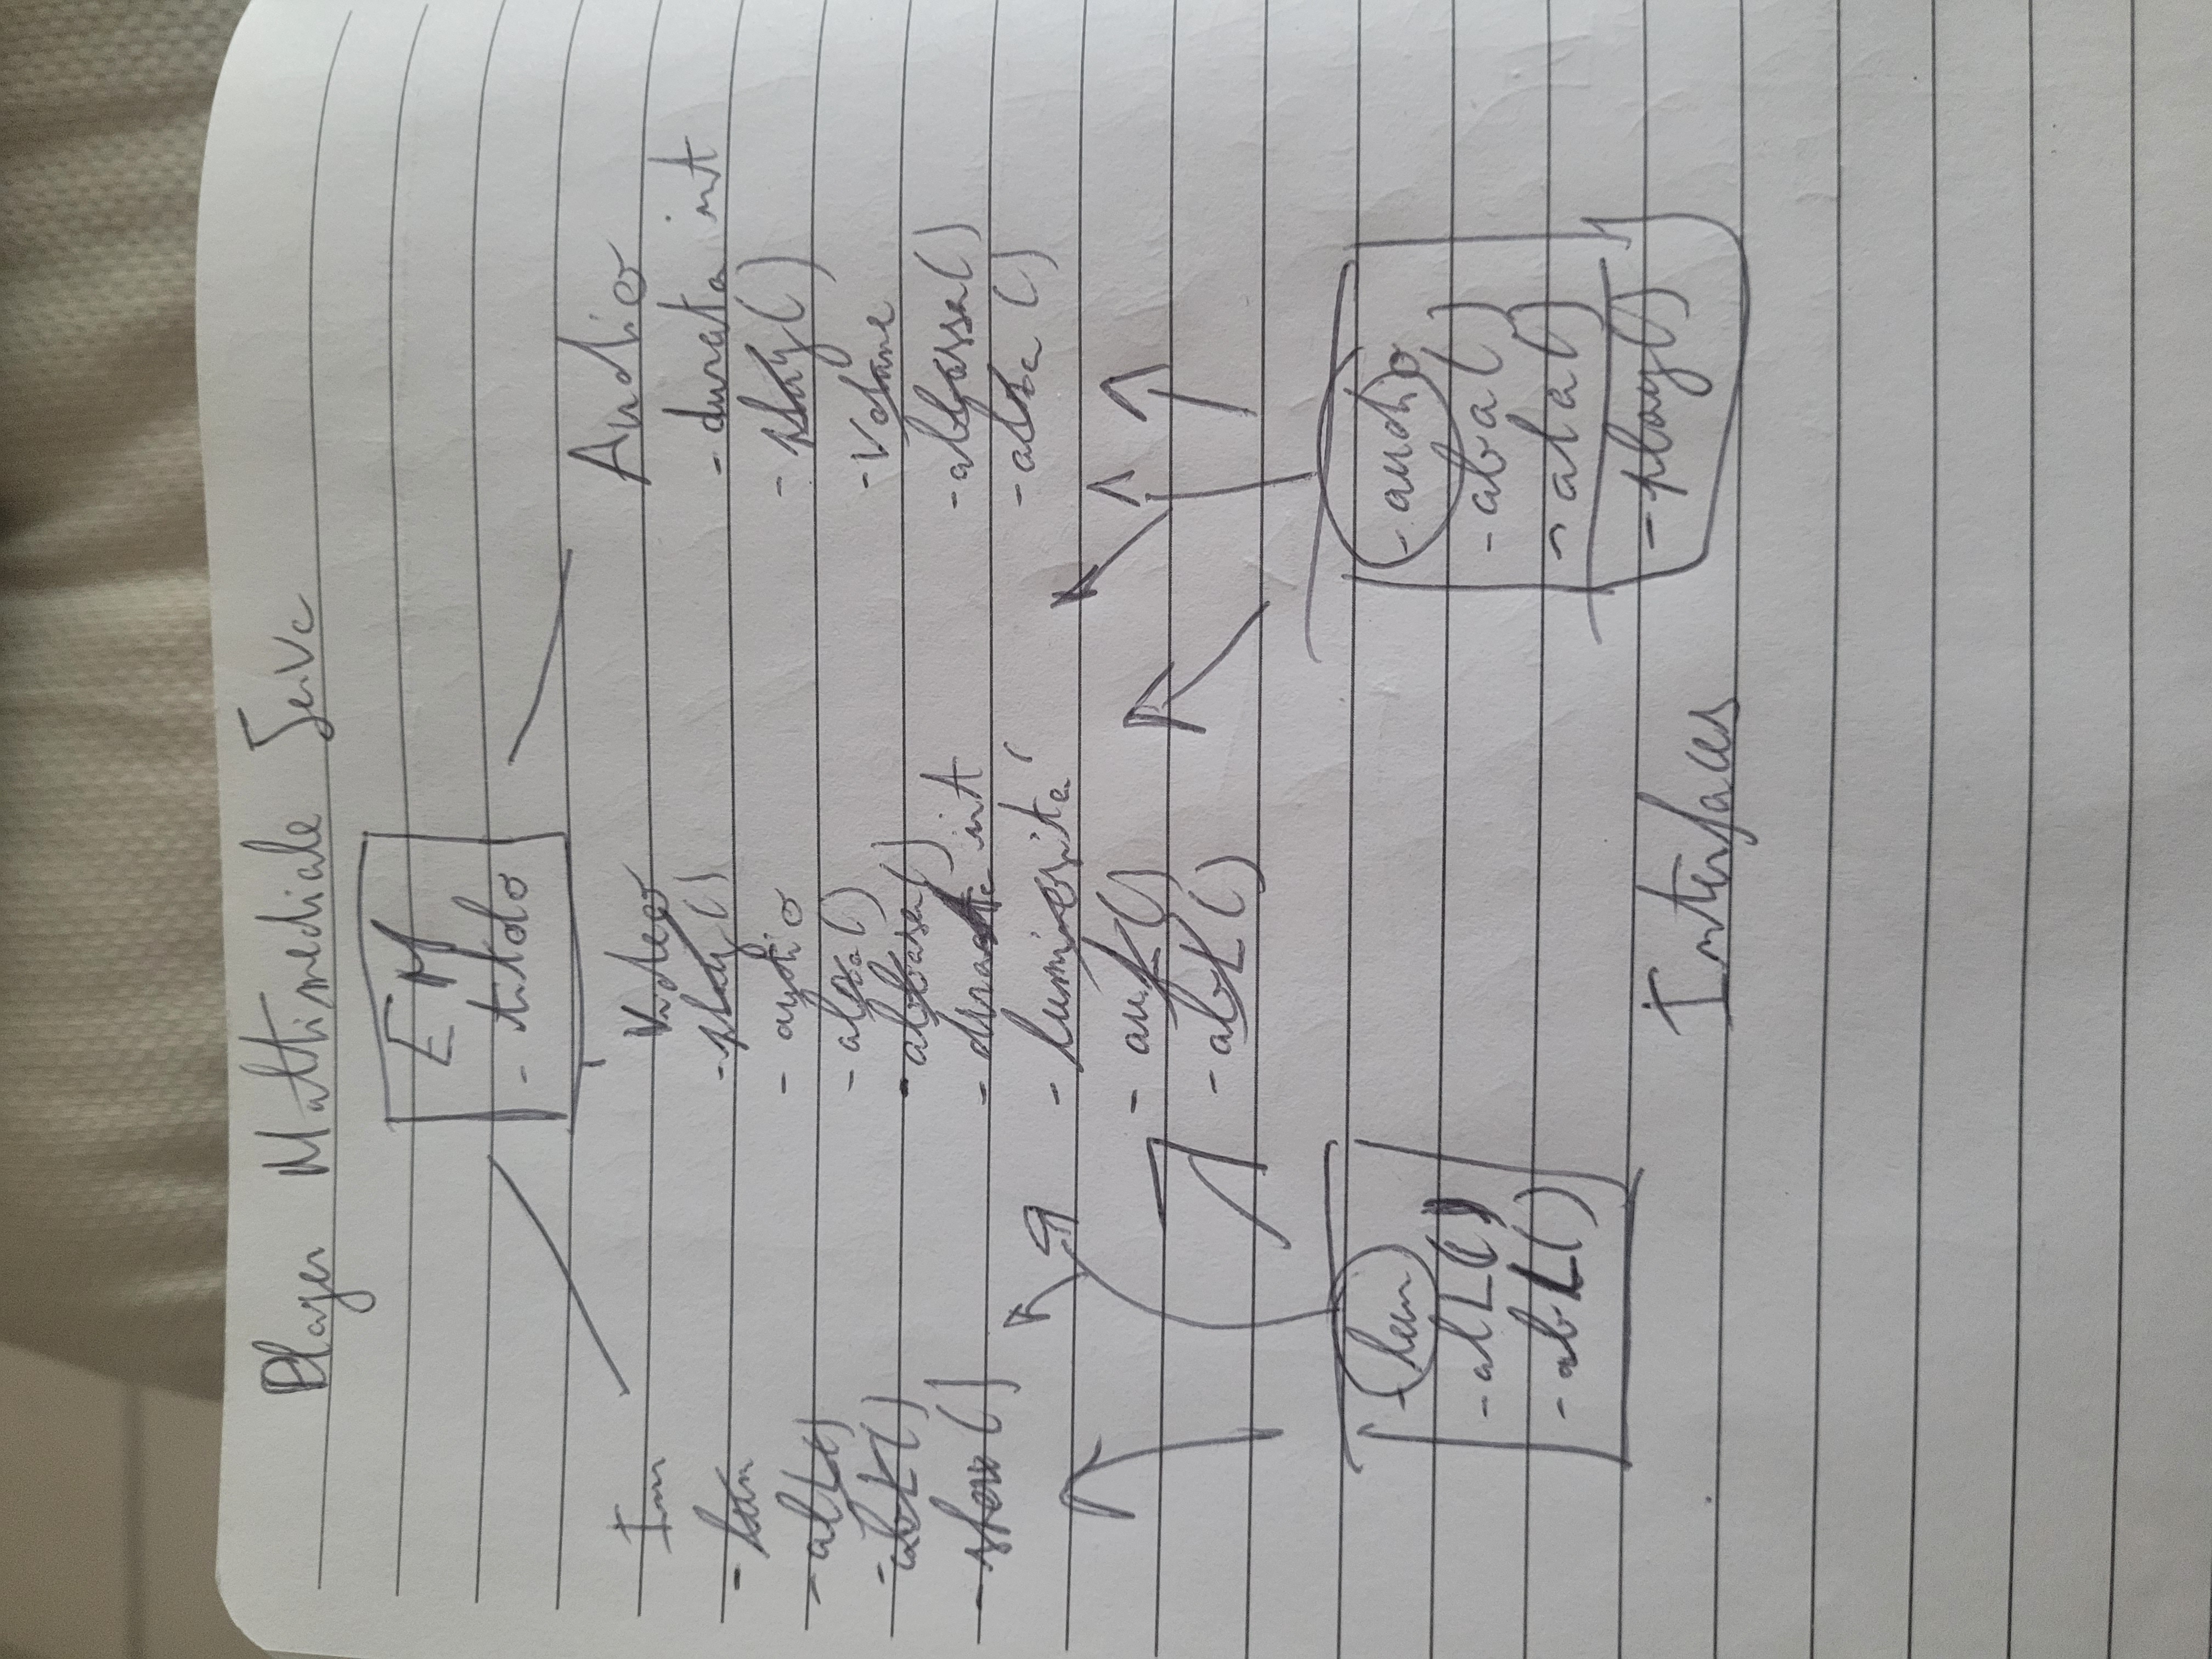 Player Multimediale Serve
EM
- titolo
Im
- lum
- alL()
- abL()
- show()
Video
- play()
- audio
- alza()
- abbassa()
- durata int
- luminosità
- auL()
- abL()
Audio
- durata int
- play()
- Volume
- abbassa()
- alza()
- lum
- alL()
- abL()
- audio
- aba()
- ala()
- play()
Interfaces